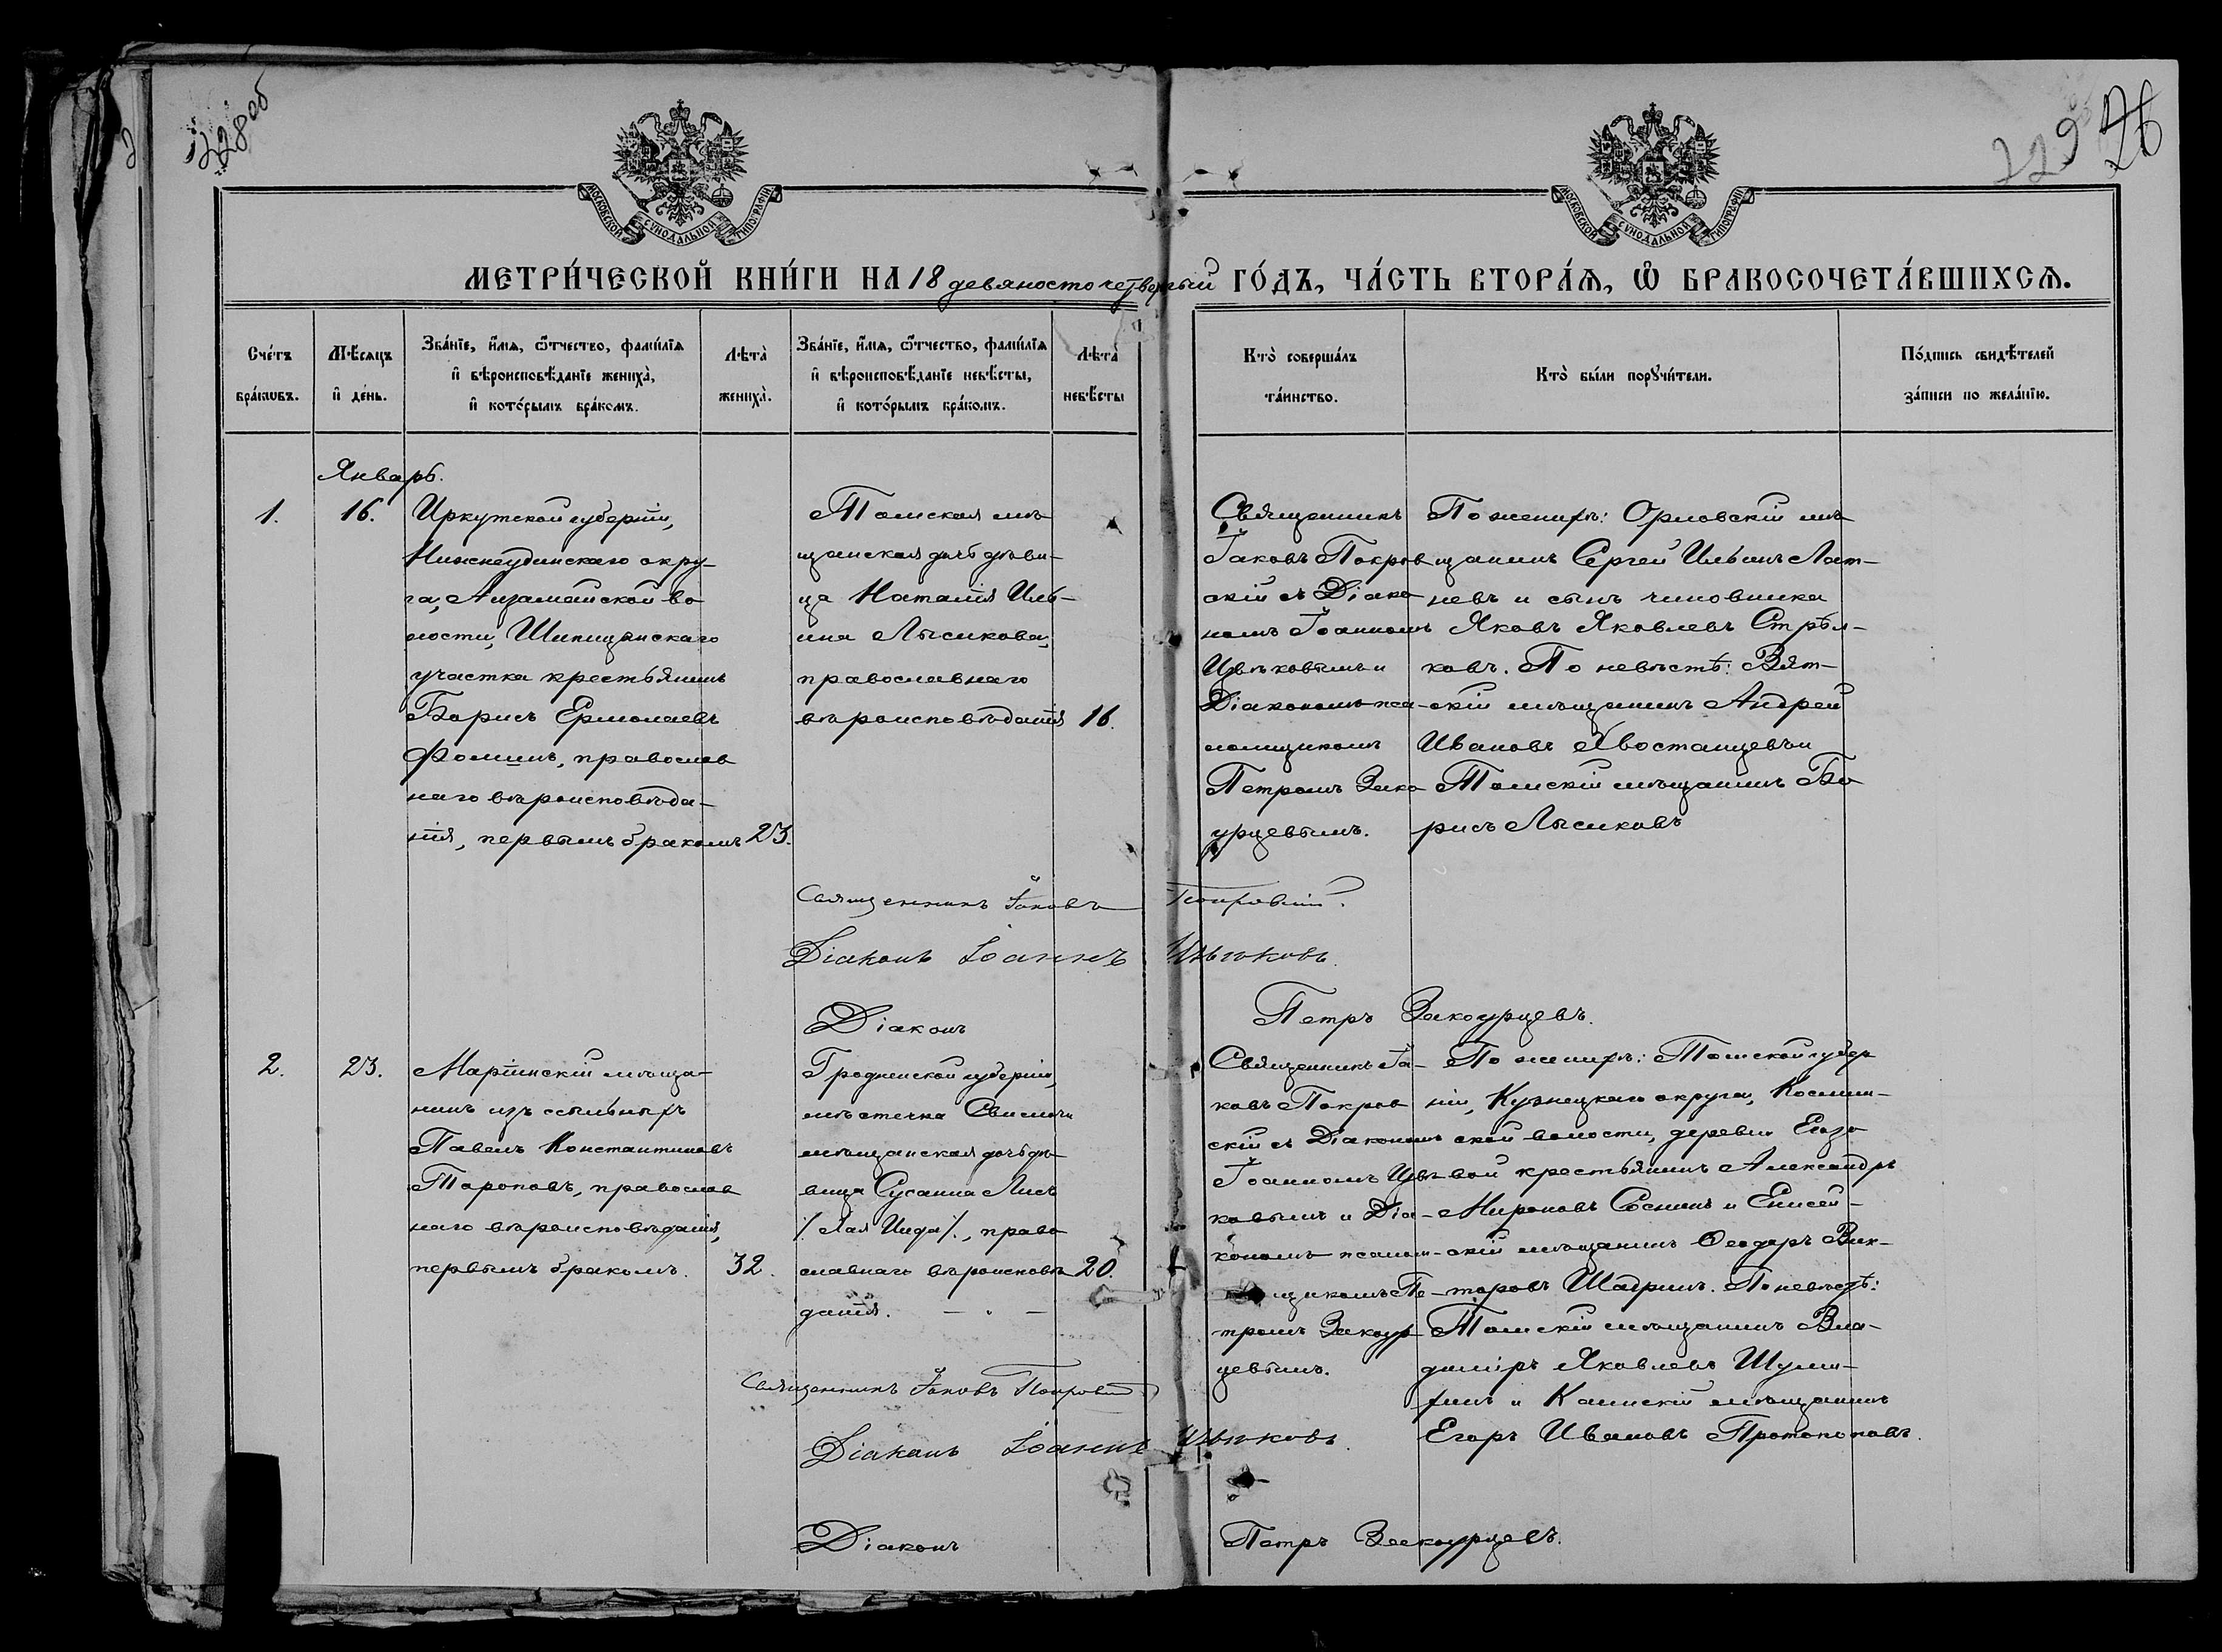 228об
229 26
МОСКОВСКОЙ СУНОДАЛЬНОЙ ТИПОГРАФІИ
МОСКОВСКОЙ СУНОДАЛЬНОЙ ТИПОГРАФІИ
МЕТРИ́ЧЕСКОЙ КНИ́ГИ НА 18 девяносто четвертый ГО́ДЪ, ЧА́СТЬ ВТОРА́Ѧ, Ѽ БРАКОСОЧЕТА́ВШИХСѦ.
Сче́тъ
бра́ковъ.
Мѣ́сяцъ
и҆ де́нь.
Зва́нїе, и҆́мѧ, ѻ҆́тчество, фами́лїѧ
и҆ вѣроисповѣ́данїе жениха̀,
и҆ кото́рымъ бра́комъ.
Лѣта̀
жениха̀.
Зва́нїе, и҆́мѧ, ѻ҆́тчество, фами́лїѧ
и҆ вѣроисповѣ́данїе невѣ́сты,
и҆ кото́рымъ бра́комъ.
Лѣта̀
невѣ́сты
Кто̀ соверша́лъ
та́инство.
Кто̀ бы́ли порꙋчи́тели.
По́дпись свидѣ́телей
за́писи по жела́нїю.
Январь.
1.
16.
Иркутской губерніи,
Нижнеудинскаго окру-
га, Алзамайской во
лости, Шипицинскаго
участка крестьянинъ
Борисъ Ермолаевъ
Фоминъ, православ
наго вѣроисповѣда-
нія, первымъ бракомъ
23.
Томская мѣ
щанская дочь дѣви-
ца Наталія Иль-
ина Лысикова,
православнаго
вѣроисповѣданія
16.
Священникъ
Іаковъ Покров
скій съ Діако
номъ Іоанномъ
Цвѣтковымъ и
Діакономъ пса-
ломщикомъ
Петромъ Закоурцевымъ.
По женихѣ: Орловскій мѣ
щанинъ Сергей Ильинъ Лат-
невъ и сынъ чиновника
Яковъ Яковлевъ Стрѣл-
ковъ. По невѣстѣ: Вят-
скій мѣщанинъ Андрей
Ивановъ Хвостанцевъ и
Томскій мѣщанинъ Бо
рисъ Лысиковъ
Священникъ Іаковъ Покровскій.
Діаконъ Іоаннъ Цвѣтковъ.
Діаконъ Петръ Закоурцевъ.
2.
23.
Маріинскій мѣща-
нинъ изъ ссыльныхъ
Павелъ Константиновъ
Тороповъ, православ
наго вѣроисповѣданія,
первымъ бракомъ.
32.
Гродненской губерніи,
мѣстечка Свислочи
мѣщанская дочь дѣ
вица Сусанна Лисъ
/: Хая Инда :/, право
славнаго вѣроисповѣ
данія. — " —
20.
Священникъ Іа-
ковъ Покров
скій съ Діакономъ
Іоанномъ Цвѣт
ковымъ и Діа-
кономъ псалом-
щикомъ Пе-
тромъ Закоур
цевымъ.
По женихѣ: Томской губер
ніи, Кузнецкаго округа, Косьмин-
ской волости, деревни
крестьянинъ Александръ
Мироновъ Соснинъ и Енисей-
скій мѣщанинъ Ѳеодоръ Вик-
торовъ Шадринъ. По невѣстѣ:
Томскій мѣщанинъ Вла-
диміръ Яковлевъ Шума-
хинъ и Каинскій мѣщанинъ
Егоръ Ивановъ Протопоповъ.
Священникъ Іаковъ Покровскій
Діаконъ Іоаннъ Цвѣтковъ.
Діаконъ Петръ Закоурцевъ.